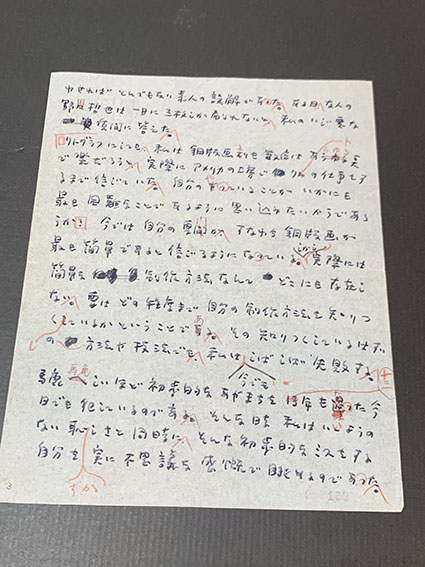 かせればとんでもない素人の誤解があった。ある日友人の
野田哲也は一日に三枚しか刷れないと、私のいじ悪な
質問に答えた。
リトグラフにしても、私は銅版画よりも
で楽だろうと、実際にアメリカの工房でリトの仕事をす
るまで信じていた。自分のやっていることがいかにも
最も困難なことであるように思い込みたいからであろ
うか。今では自分の専門が、すなわち銅版画が
最も簡単であると信じるようになっている。しかし実際には
簡単な制作方法なんてどこにも存在し
ない。要はどの程度まで自分の制作方法を知りつ
くしているかということである。その知りつくしているはず
の方法や技法でも、私はしばしば失敗する。
馬鹿馬鹿しいほど初歩的なあやまちを 年も過ぎた今
今でも
日でも犯しているのである。そんな日は私はいいようの
ない恥しさと同時に、そんな初歩的なミスをする
自分を実に不思議な感慨で眺めるのであった。
3
120